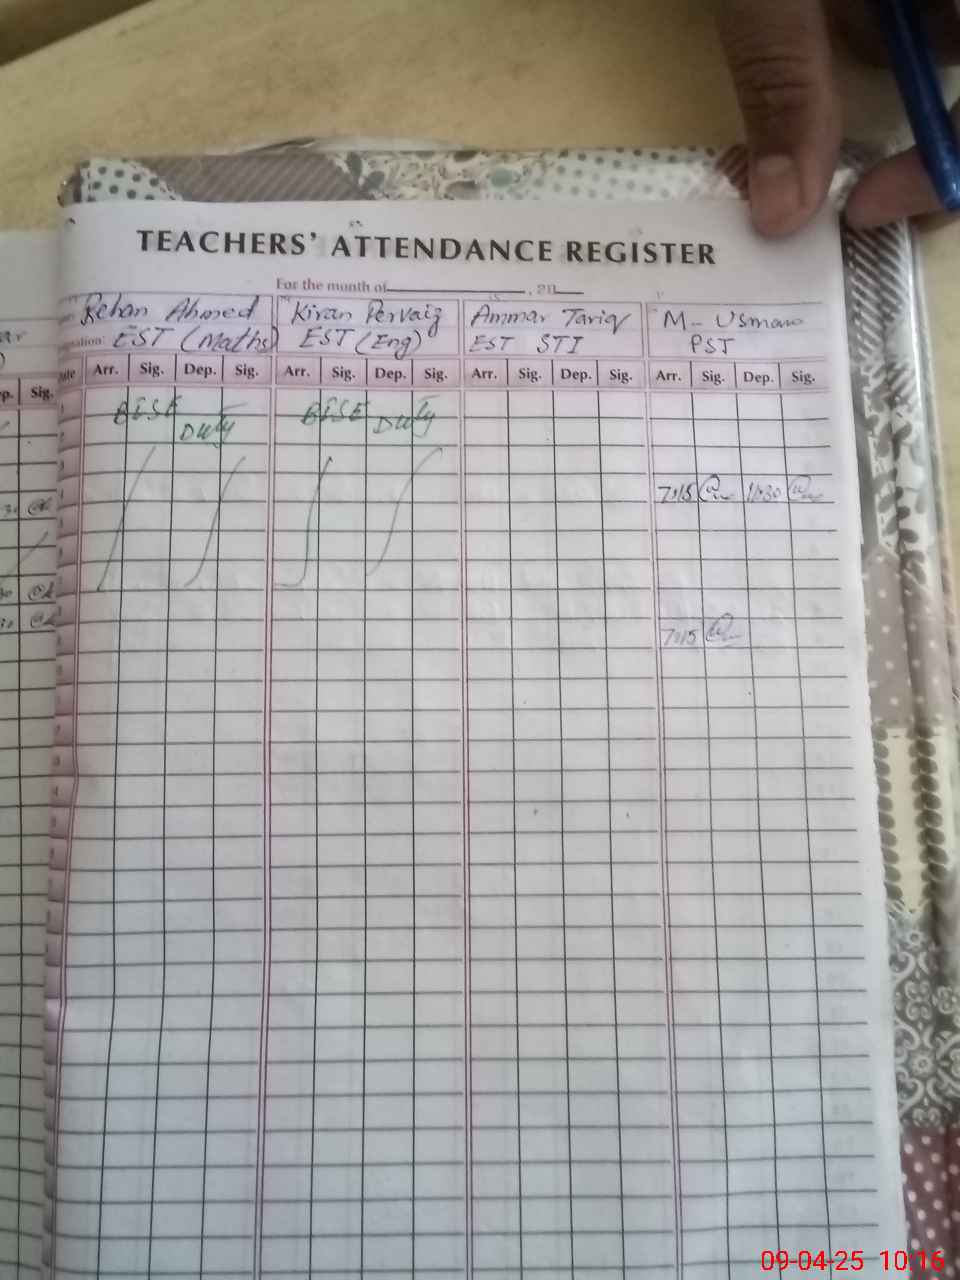 TEACHERS' ATTENDANCE REGISTER
For the month of , 20
Rehan Ahmed Kiran Pervaiz Ammar Tariq M- Usman
EST (Maths) EST (Eng) EST STI PST
Sig. Date Arr. Sig. Dep. Sig. Arr. Sig. Dep. Sig. Arr. Sig. Dep. Sig. Arr. Sig. Dep. Sig.
BISE Duty BISE Duty
7:15 11:30
7:15
09-04-25 10:16